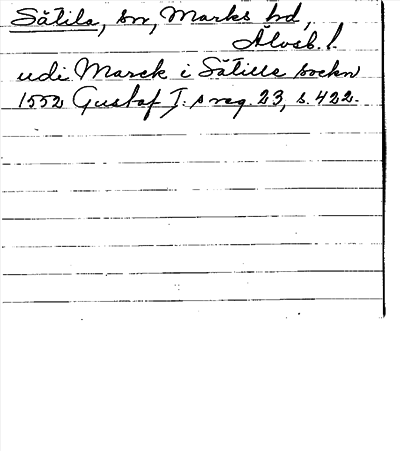 Sätila, sn, Marks hd,
Älvsb. l.
udi Marck i Sätille sockn
1552 Gustaf I:s reg. 23, s. 422.